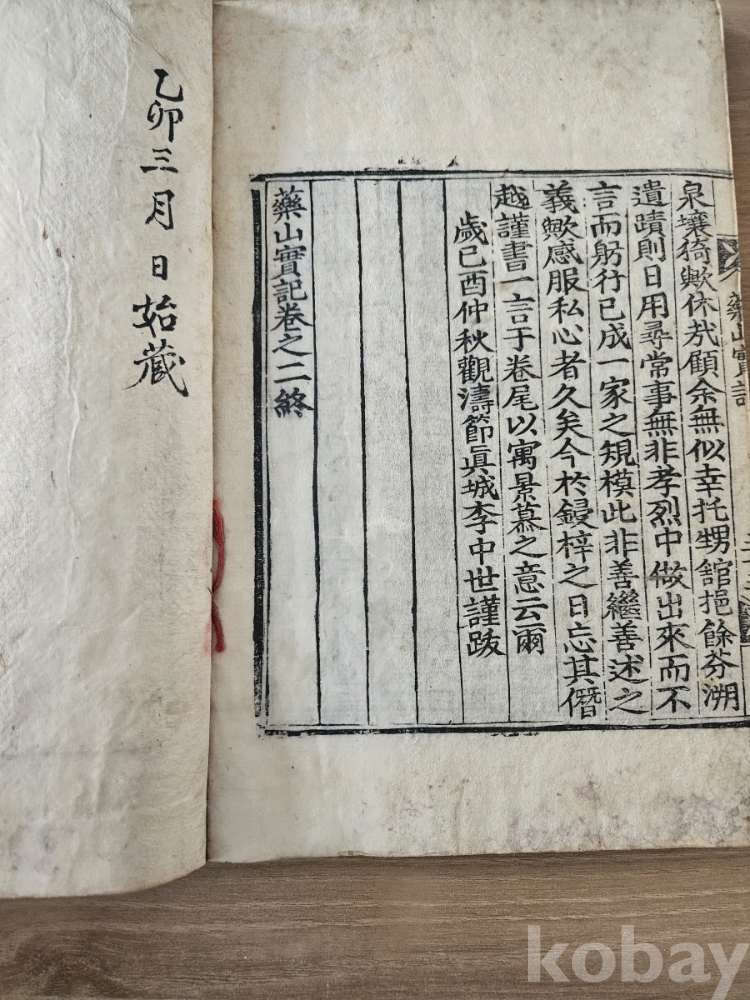 藥山實記
泉壤猗歟休哉顧余無似幸托甥舘挹餘芬溯
遺蹟則日用尋常事無非孝烈中做出來而不
言而躬行已成一家之規模此非善繼善述之
義歟感服私心者久矣今於鋟梓之日忘其僭
越謹書一言于卷尾以寓景慕之意云爾
歲己酉仲秋觀濤節眞城李中世謹跋
藥山實記卷之二終
乙卯三月日始藏
kobay